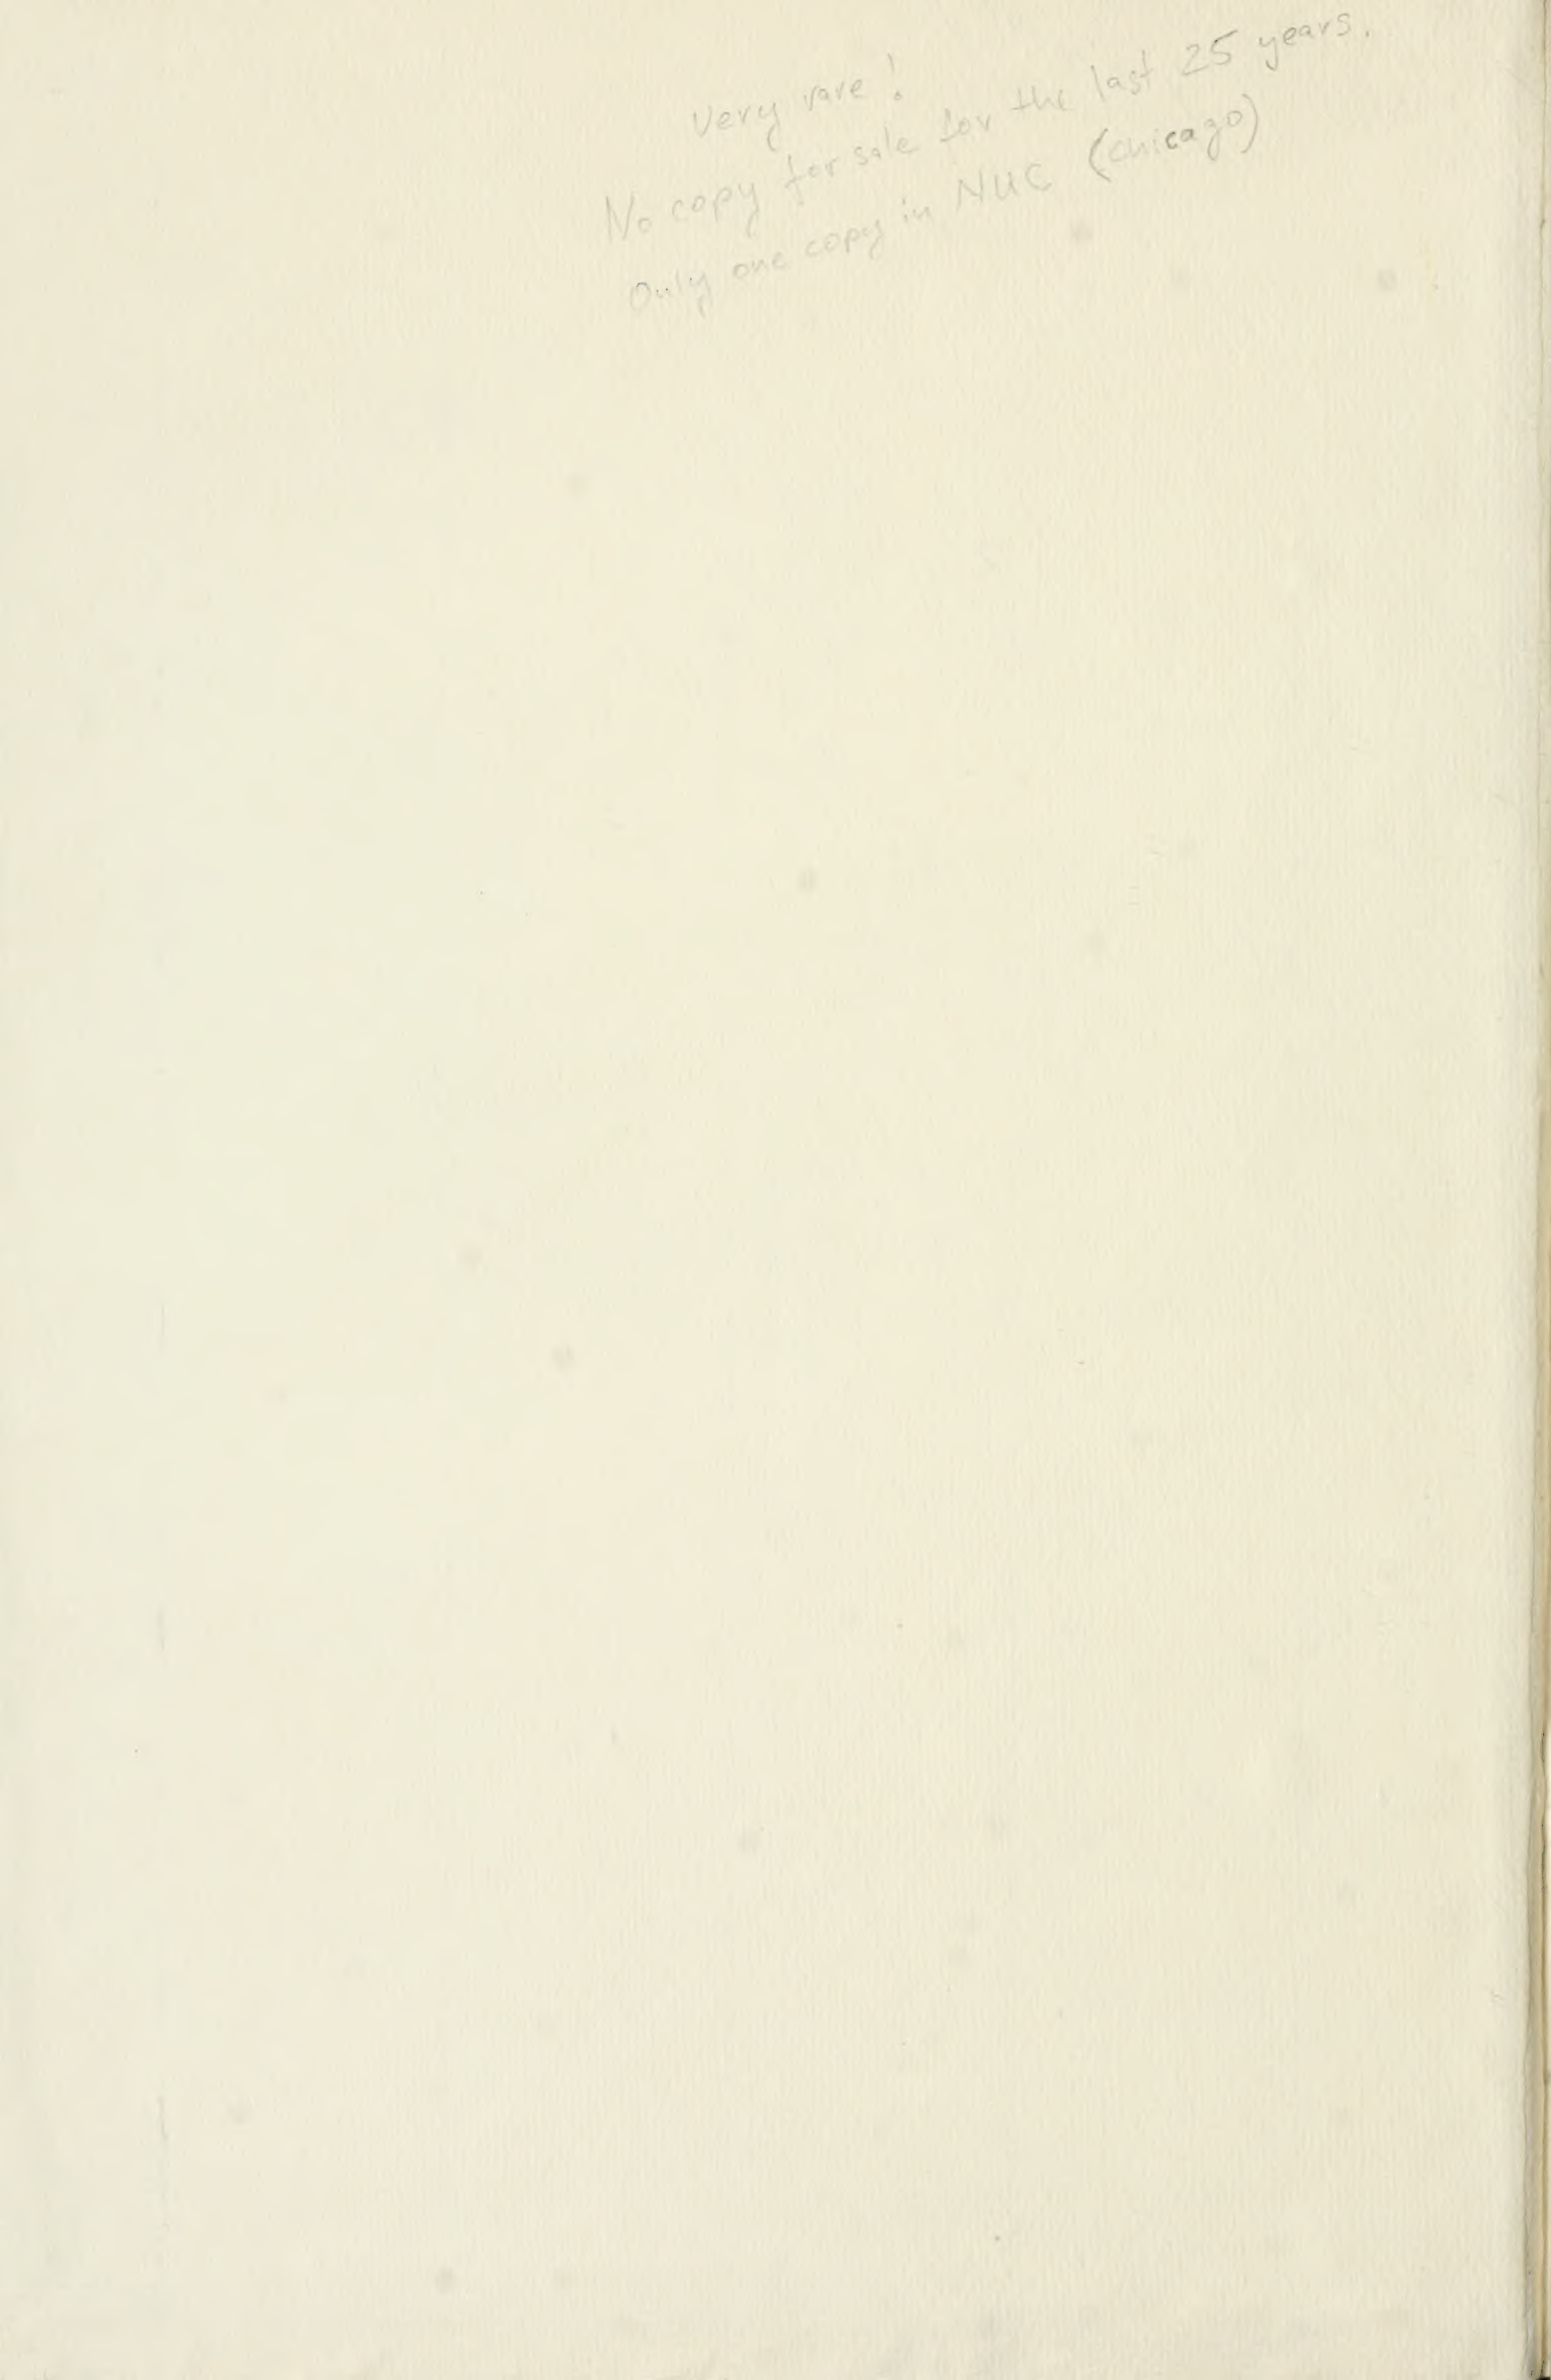 Very rare!
No copy for sale for the last 25 years.
Only one copy in NUC (Chicago)